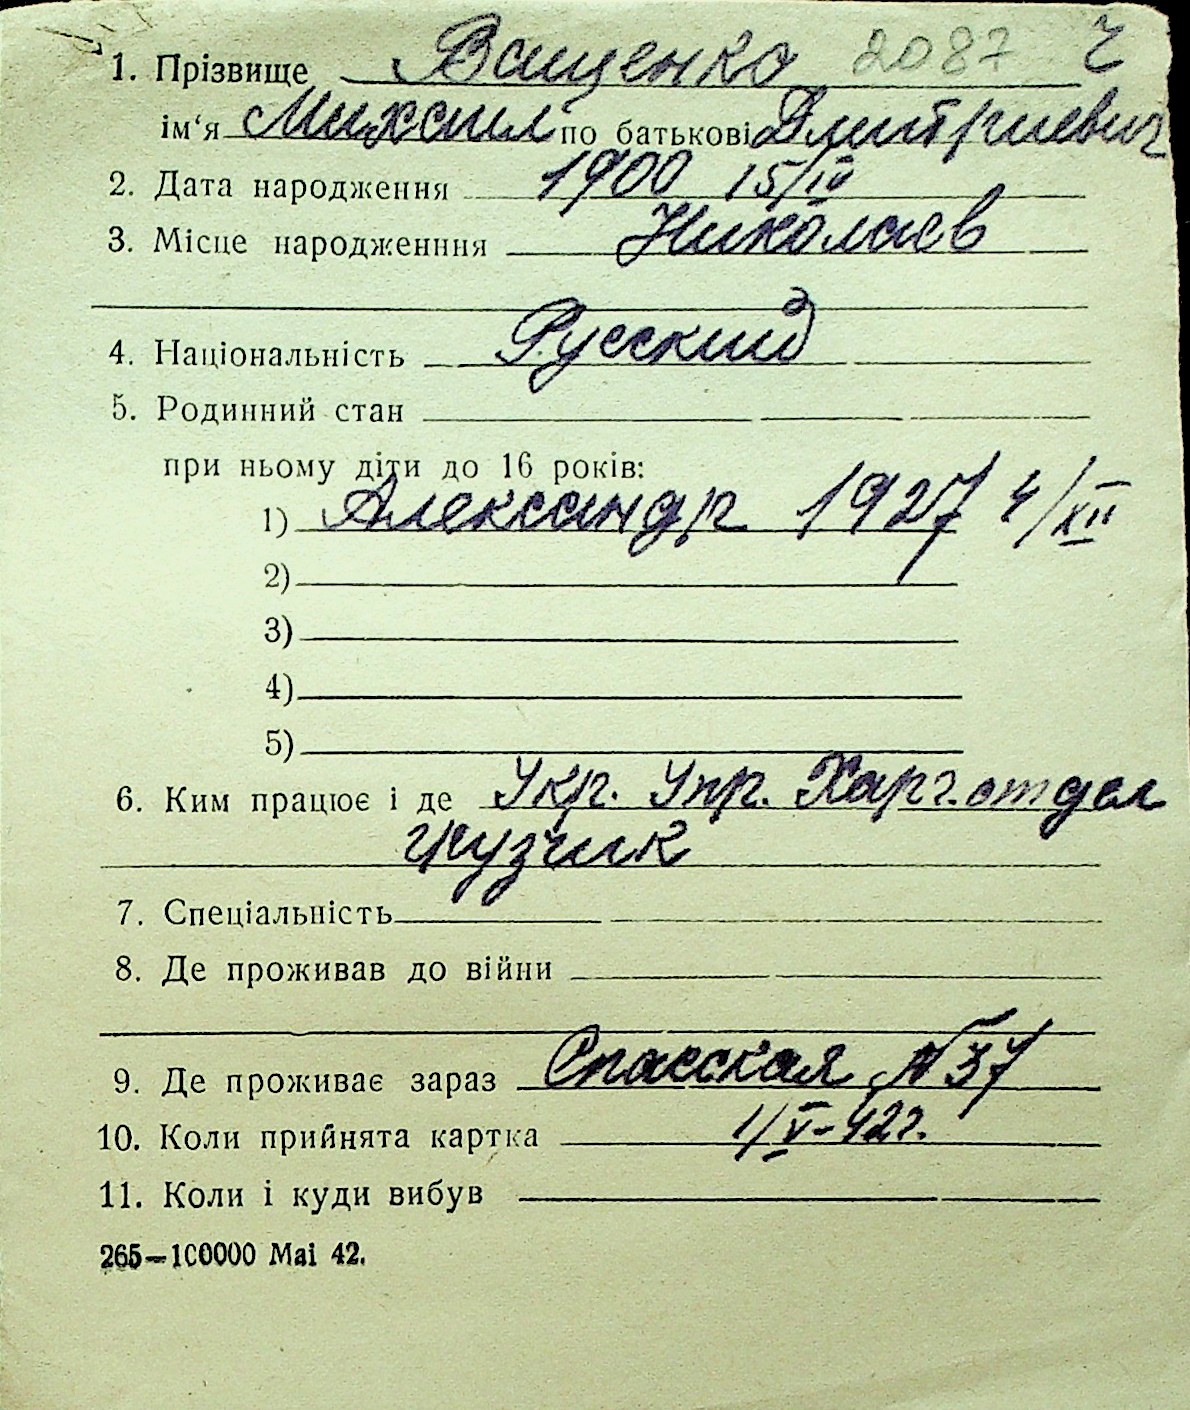 1. Прізвище Ващенко 2087 ч
ім'я Михаил по батькові Дмитриевич
2. Дата народження 1900 15/IV
3. Місце народженння Николаев
4. Національність Русский
5. Родинний стан
при ньому діти до 16 років:
1) Александр 1927 4/XII
2)
3)
4)
5)
6. Ким працює і де Укр. Упр. Харч. отдел
грузчик
7. Спеціальність
8. Де проживав до війни
9. Де проживає зараз Спасская №37
10. Коли прийнята картка 1/V-42г.
11. Коли і куди вибув
265—100000 Mai 42.